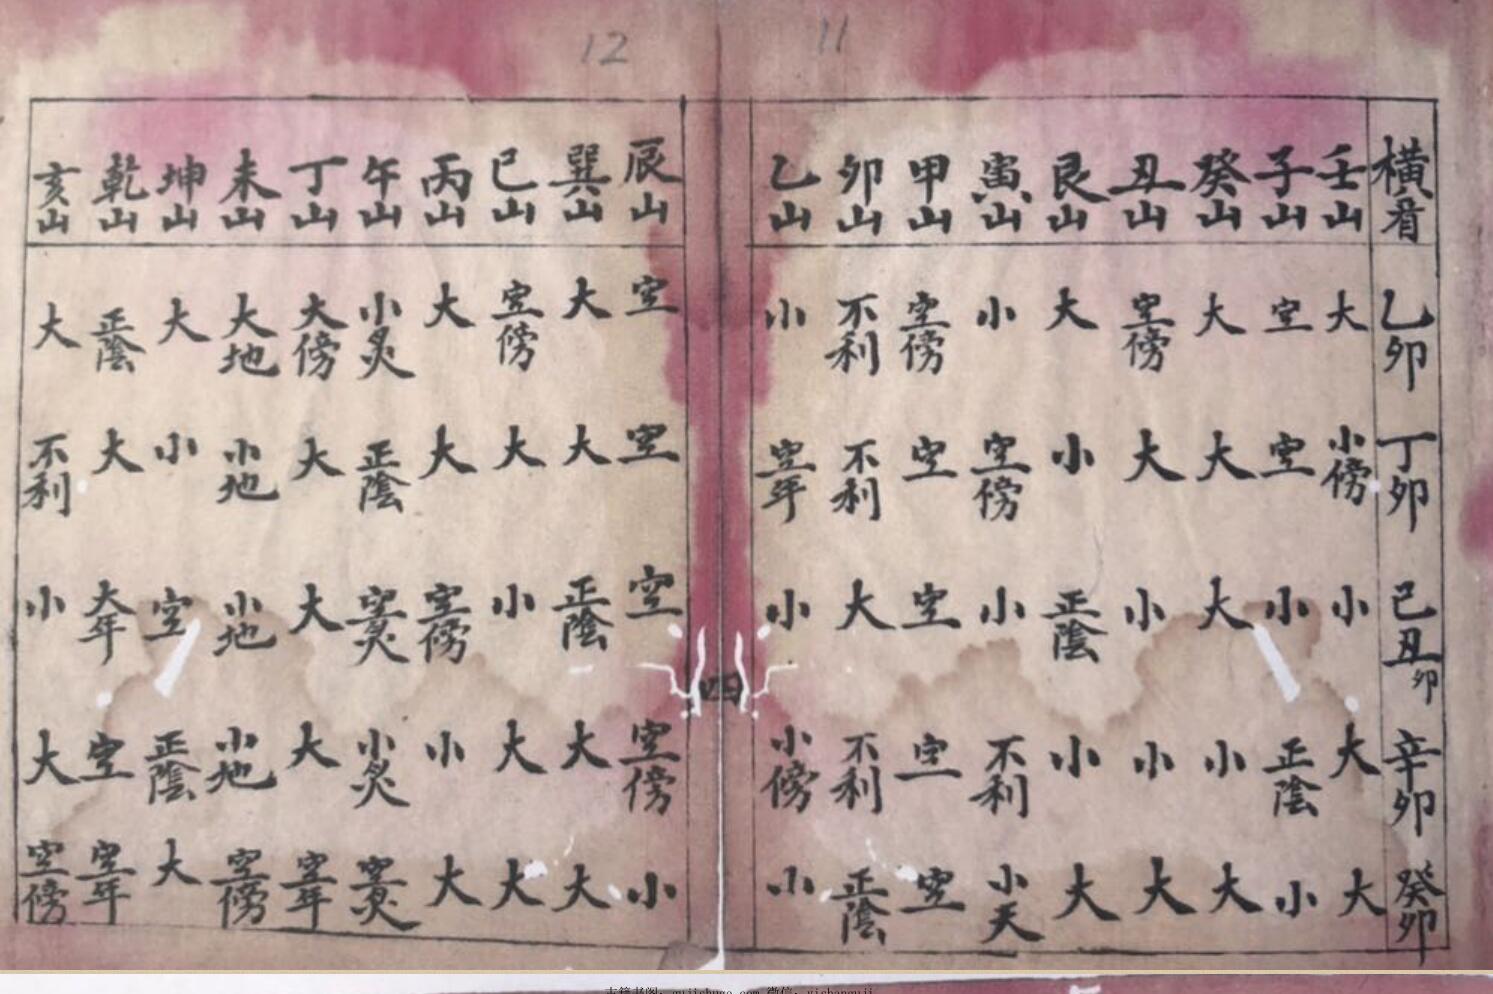 11
橫看 乙卯 丁卯 己丑卯 辛卯 癸卯
壬山 大 小傍 小 大 大
子山 空 空 小 正陰 小
癸山 大 大 大 小 大
丑山 空傍 大 小 小 大
艮山 大 小 正陰 小 大
寅山 小 空傍 小 不利 小天
甲山 空傍 空 空 空 空
卯山 不利 不利 大 不利 正陰
乙山 小 空年 小 小傍 小
四
12
辰山 空 空 空 空傍 小
巽山 大 大 正陰 大 大
巳山 空傍 大 小 大 大
丙山 大 大 空傍 小 大
午山 小炙 正陰 空炙 小炙 空炙
丁山 大傍 大 大 大 空年
未山 大地 小地 小地 小地 空傍
坤山 大 小 空 正陰 大
乾山 正陰 大 大年 空 空年
亥山 大 不利 小 大 空傍